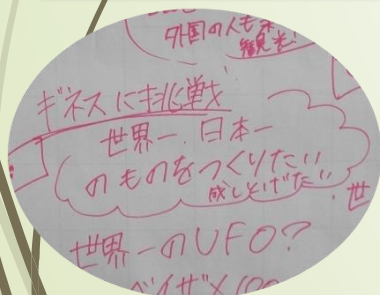 外国の人も
観光!
ギネスに挑戦
世界一 日本一
のものをつくりたい
成しとげたい
世
世界一のUFO?